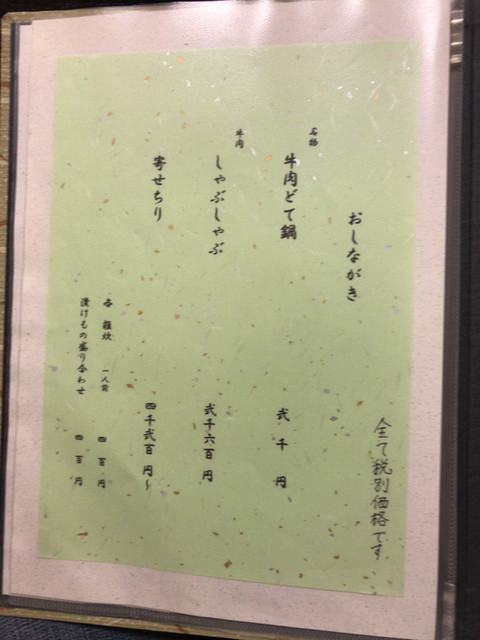 全て税別価格です
おしながき
名物
牛肉どて鍋 弐千円
牛肉
しゃぶしゃぶ 弐千六百円
寄せちり 四千弐百円〜
各 雑炊 一人前 四百円
漬けもの盛り合わせ 四百円